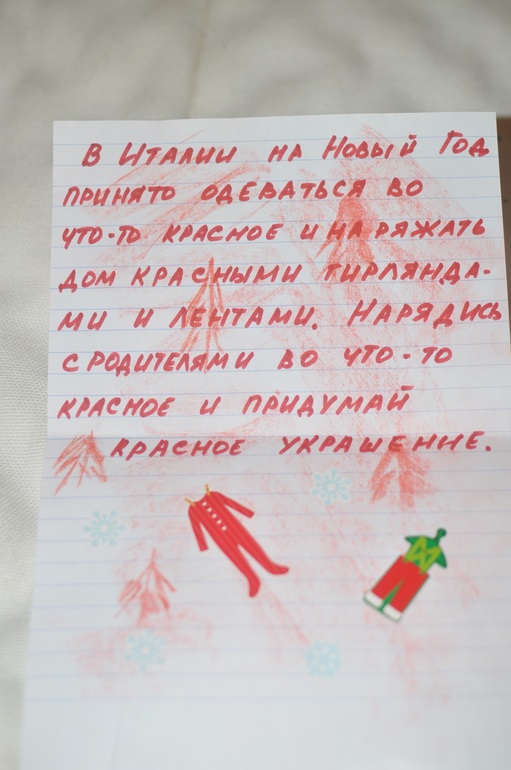 В Италии на Новый Год
принято одеваться во
что-то красное и наряжать
дом красными гирлянда-
ми и лентами. Нарядись
с родителями во что-то
красное и придумай
красное украшение.